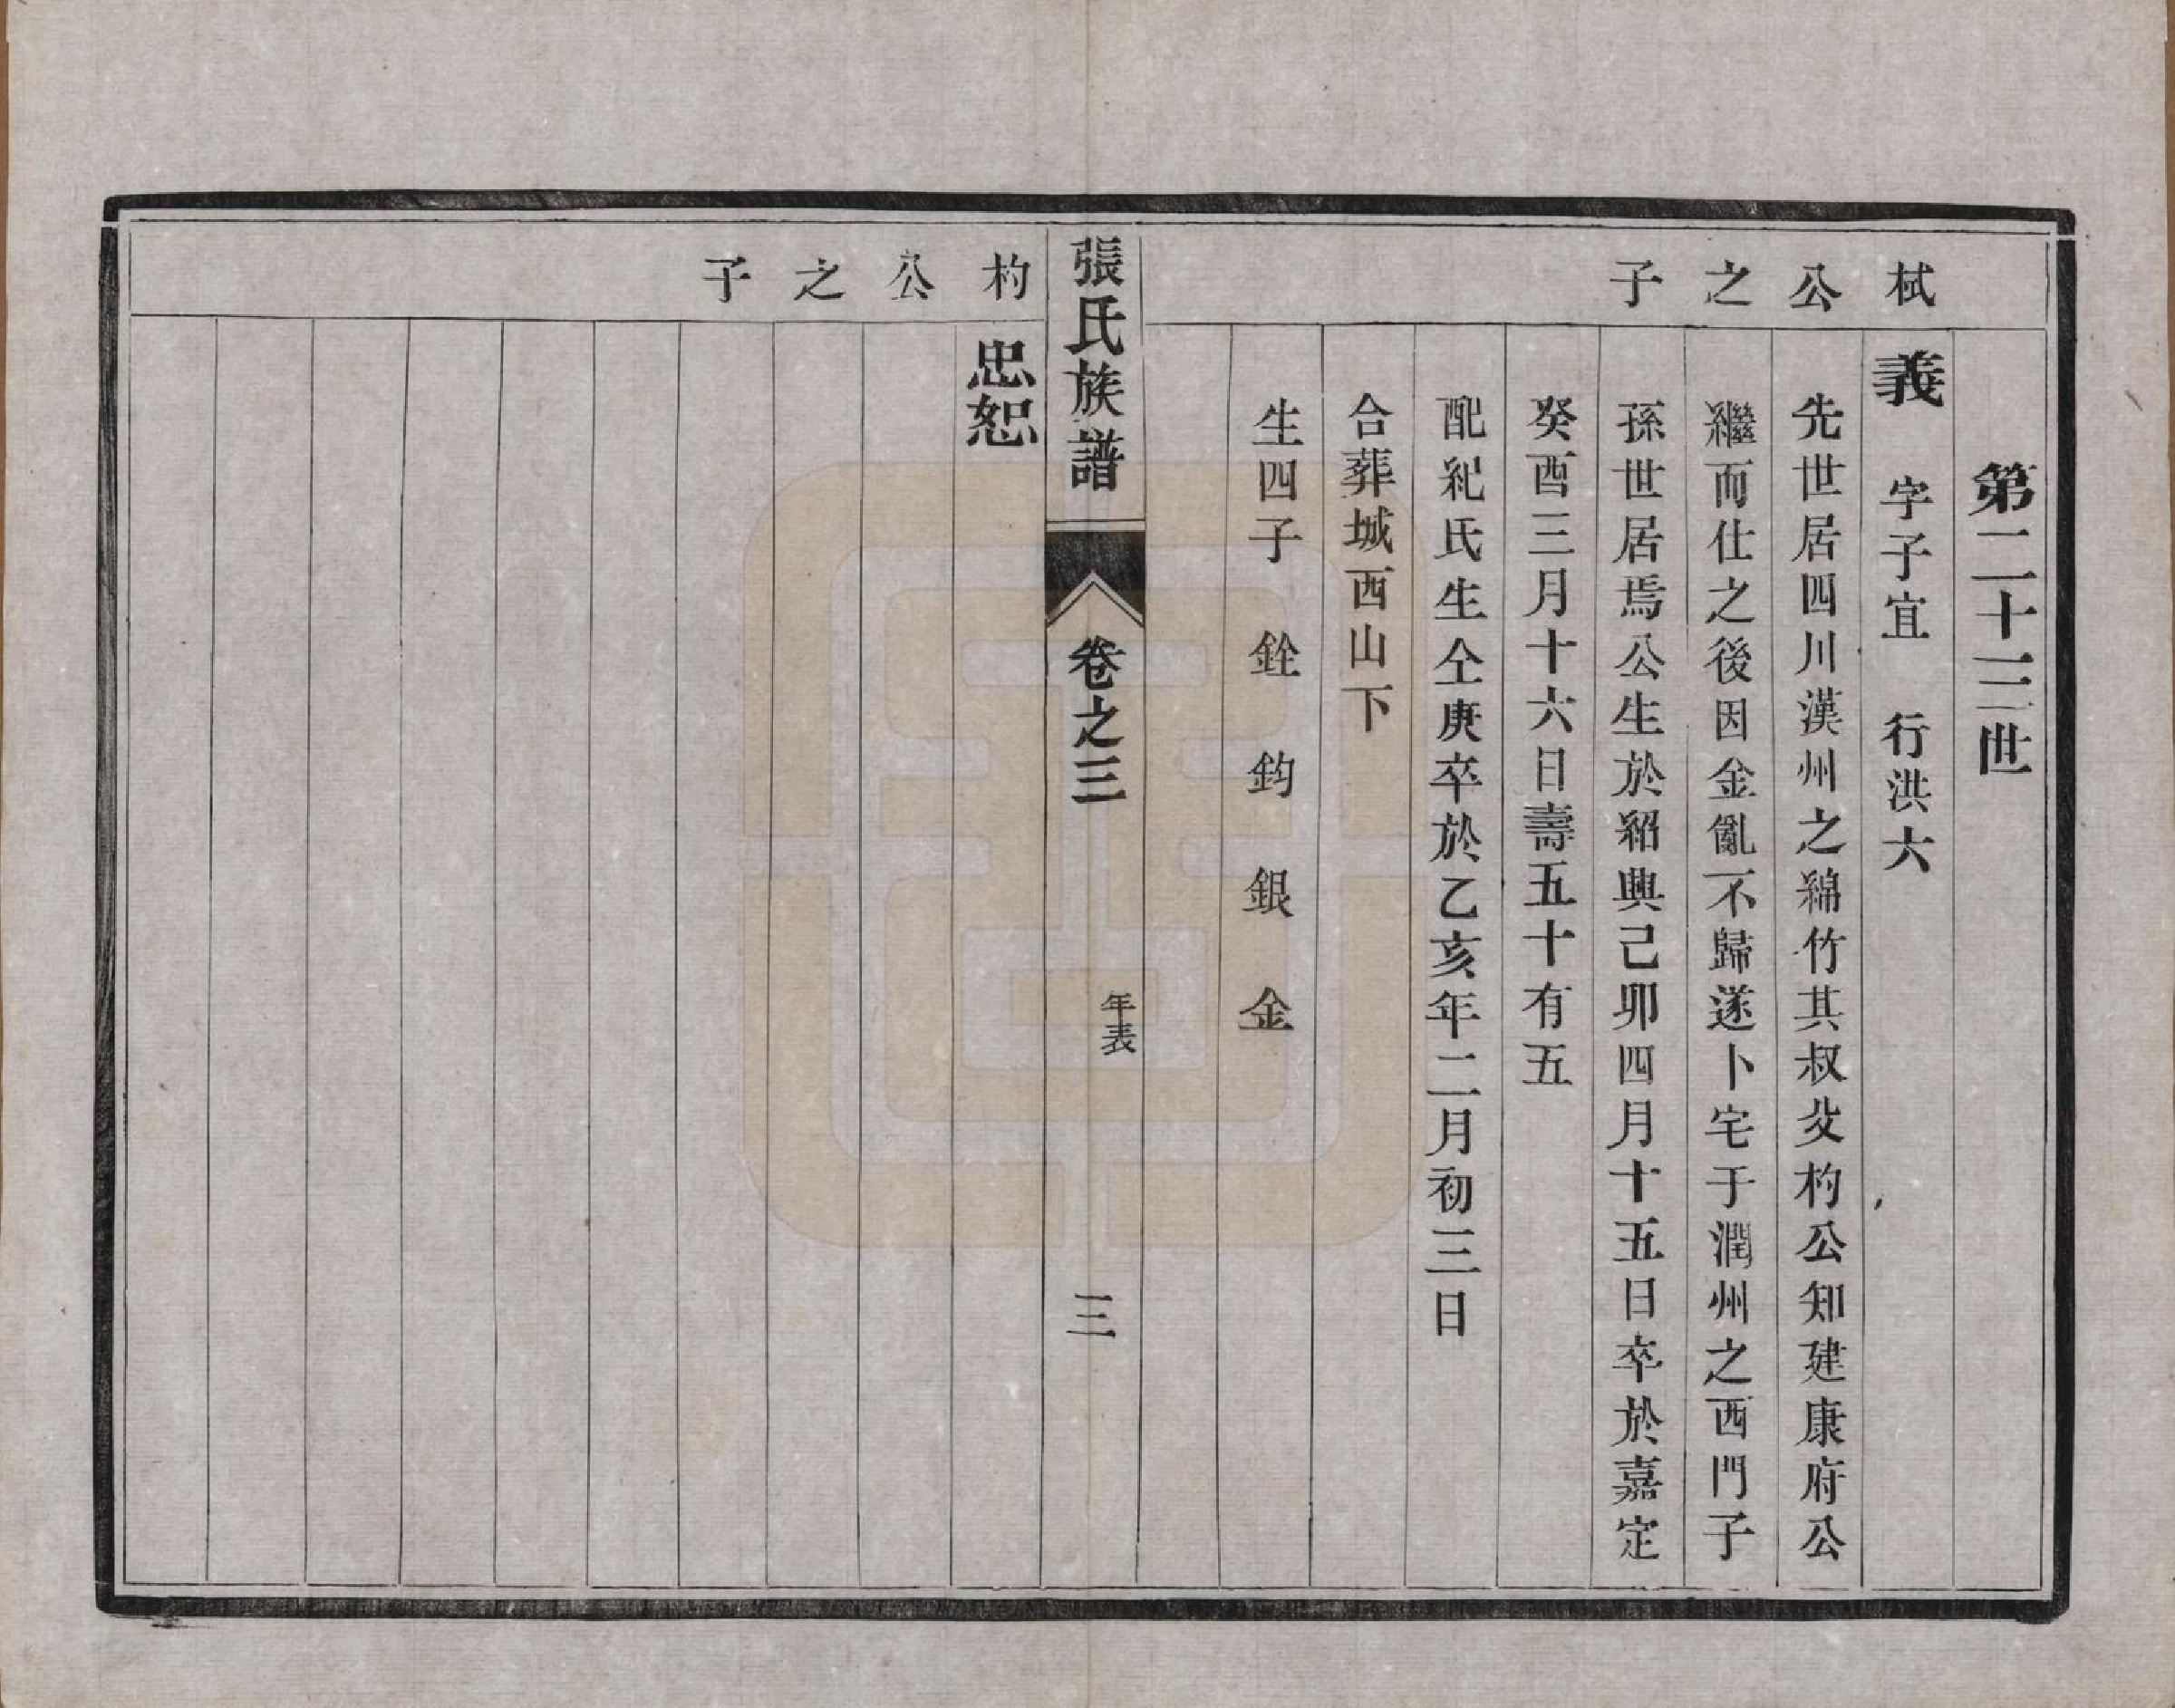 第二十三世
栻公之子
義 字子宜 行洪六
先世居四川漢州之綿竹其叔父杓公知建康府公
繼而仕之後因金亂不歸遂卜宅于潤州之西門子
孫世居焉公生於紹興己卯四月十五日卒於嘉定
癸酉三月十六日壽五十有五
配紀氏生仝庚卒於乙亥年二月初三日
合葬城西山下
生四子 銓 鈞 銀 金
張氏族譜 卷之三 年表 三
杓公之子
忠恕